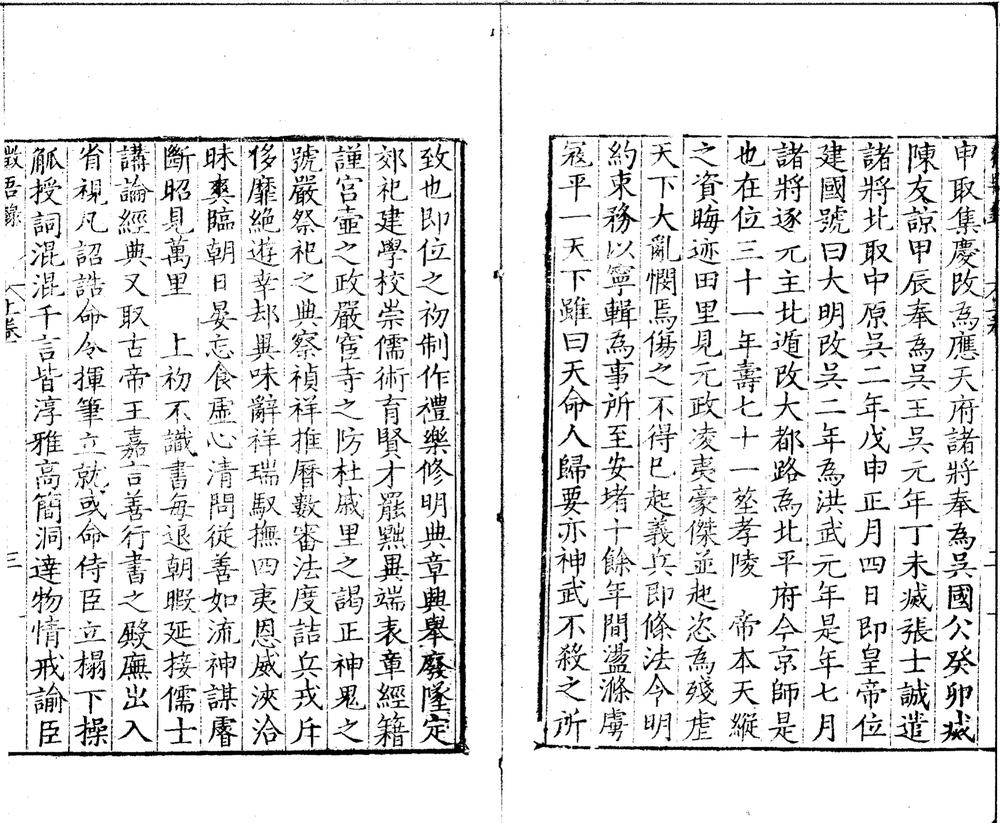 申取集慶改為應天府諸將奉為吳國公癸卯㓕
陳友諒甲辰奉為吳王吳元年丁未㓕張士誠遣
諸將北取中原吳二年戊申正月四日即皇帝位
建國號曰大明改吳二年為洪武元年是年七月
諸將逐元主北遁改大都路為北平府今京師是
也在位三十一年壽七十一葬孝陵　帝本天縱
之資晦迹田里見元政凌夷豪傑並起恣為殘虐
天下大亂憫焉傷之不得已起義兵即條法令明
約束務以寧輯為事所至安堵十餘年間盪滌虜
冦平一天下雖曰天命人歸要亦神武不殺之所
致也即位之初制作禮樂修明典章興舉廢墜定
郊祀建學校崇儒術育賢才罷黜異端表章經籍
謹宫壼之政嚴宦寺之防杜戚里之謁正神鬼之
號嚴祭祀之典察禎祥推曆數審法度詰兵戎斥
侈靡絶遊幸却異味辭祥瑞馭撫四夷恩威浹洽
昧爽臨朝日晏忘食虚心清問從善如流神謀睿
斷昭見萬里　上初不識書每退朝暇延接儒士
講論經典又取古帝王嘉言善行書之殿廡出入
省視凡詔誥命令揮筆立就或命侍臣立榻下操
觚授詞混混千言皆淳雅高簡洞達物情戒諭臣
三